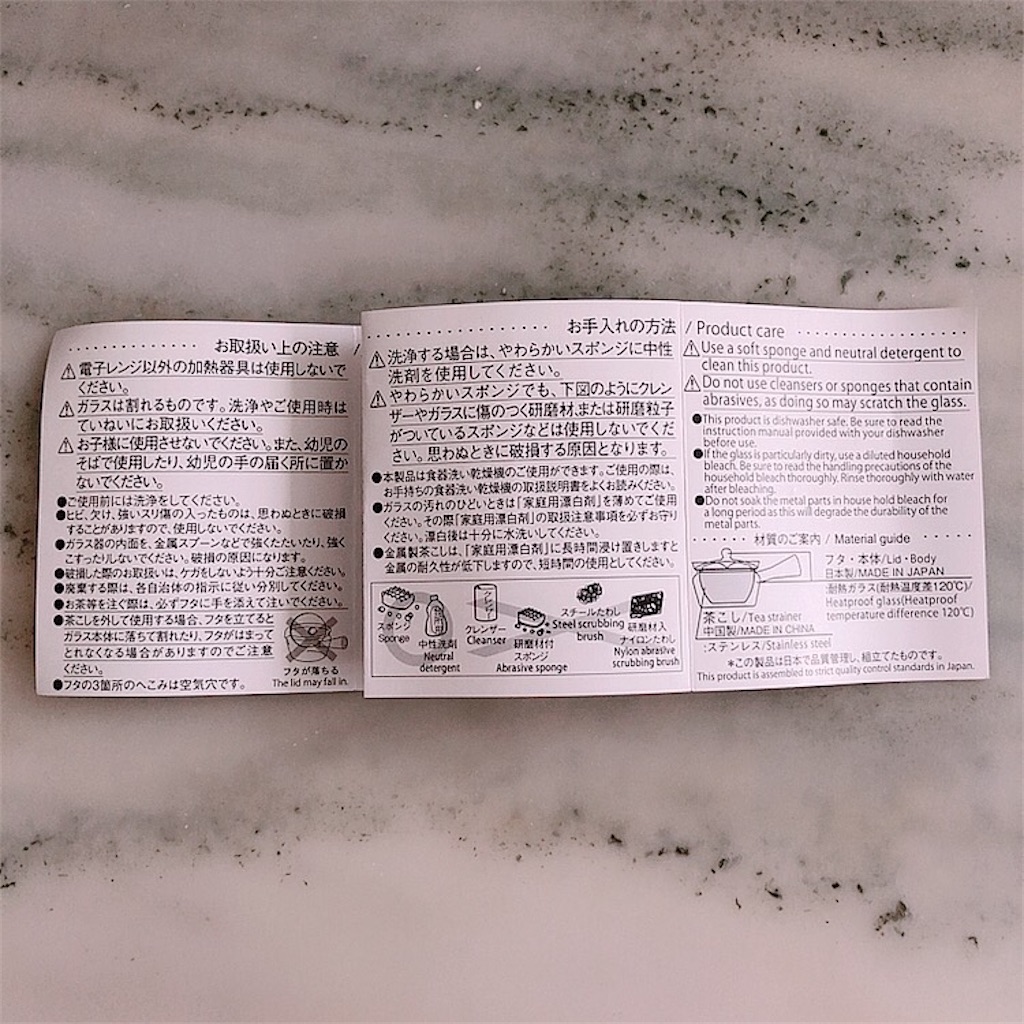 お取扱い上の注意 /
電子レンジ以外の加熱器具は使用しないで
ください。
ガラスは割れるものです。洗浄やご使用時は
ていねいにお取扱いください。
お子様に使用させないでください。また、幼児の
そばで使用したり、幼児の手の届く所に置か
ないでください。
●ご使用前には洗浄をしてください。
●ヒビ、欠け、強いスリ傷の入ったものは、思わぬときに破損
することがありますので、使用しないでください。
●ガラス器の内面を、金属スプーンなどで強くたたいたり、強く
こすったりしないでください。破損の原因になります。
●破損した際のお取扱いは、ケガをしないよう十分ご注意ください。
●廃棄する際は、各自治体の指示に従い分別してください。
●お茶等を注ぐ際は、必ずフタに手を添えて注いでください。
●茶こしを外して使用する場合、フタを立てると
ガラス本体に落ちて割れたり、フタがはまって
とれなくなる場合がありますのでご注意
ください。
フタが落ちる
The lid may fall in.
●フタの3箇所のへこみは空気穴です。
お手入れの方法
洗浄する場合は、やわらかいスポンジに中性
洗剤を使用してください。
やわらかいスポンジでも、下図のようにクレン
ザーやガラスに傷のつく研磨材、または研磨粒子
がついているスポンジなどは使用しないでくだ
さい。思わぬときに破損する原因となります。
●本製品は食器洗い乾燥機のご使用ができます。ご使用の際は、
お手持ちの食器洗い乾燥機の取扱説明書をよくお読みください。
●ガラスの汚れのひどいときは「家庭用漂白剤」を薄めてご使用
ください。その際「家庭用漂白剤」の取扱注意事項を必ずお守り
ください。漂白後は十分に水洗いしてください。
●金属製茶こしは、「家庭用漂白剤」に長時間浸け置きしますと
金属の耐久性が低下しますので、短時間の使用としてください。
スポンジ
Sponge
中性洗剤
Neutral
detergent
クレンザー
クレンザー
Cleanser
研磨材付
スポンジ
Abrasive sponge
スチールたわし
Steel scrubbing
brush
研磨材入
ナイロンたわし
Nylon abrasive
scrubbing brush
/ Product care
Use a soft sponge and neutral detergent to
clean this product.
Do not use cleansers or sponges that contain
abrasives, as doing so may scratch the glass.
●This product is dishwasher safe. Be sure to read the
instruction manual provided with your dishwasher
before use.
●If the glass is particularly dirty, use a diluted household
bleach. Be sure to read the handling precautions of the
household bleach thoroughly. Rinse thoroughly with water
after bleaching.
●Do not soak the metal parts in house hold bleach for
a long period as this will degrade the durability of the
metal parts.
材質のご案内 / Material guide
フタ・本体/Lid・Body
日本製/MADE IN JAPAN
:耐熱ガラス(耐熱温度差120℃)/
Heatproof glass(Heatproof
temperature difference 120℃)
茶こし/Tea strainer
中国製/MADE IN CHINA
:ステンレス/Stainless steel
*この製品は日本で品質管理し、組立てたものです。
This product is assembled to strict quality control standards in Japan.